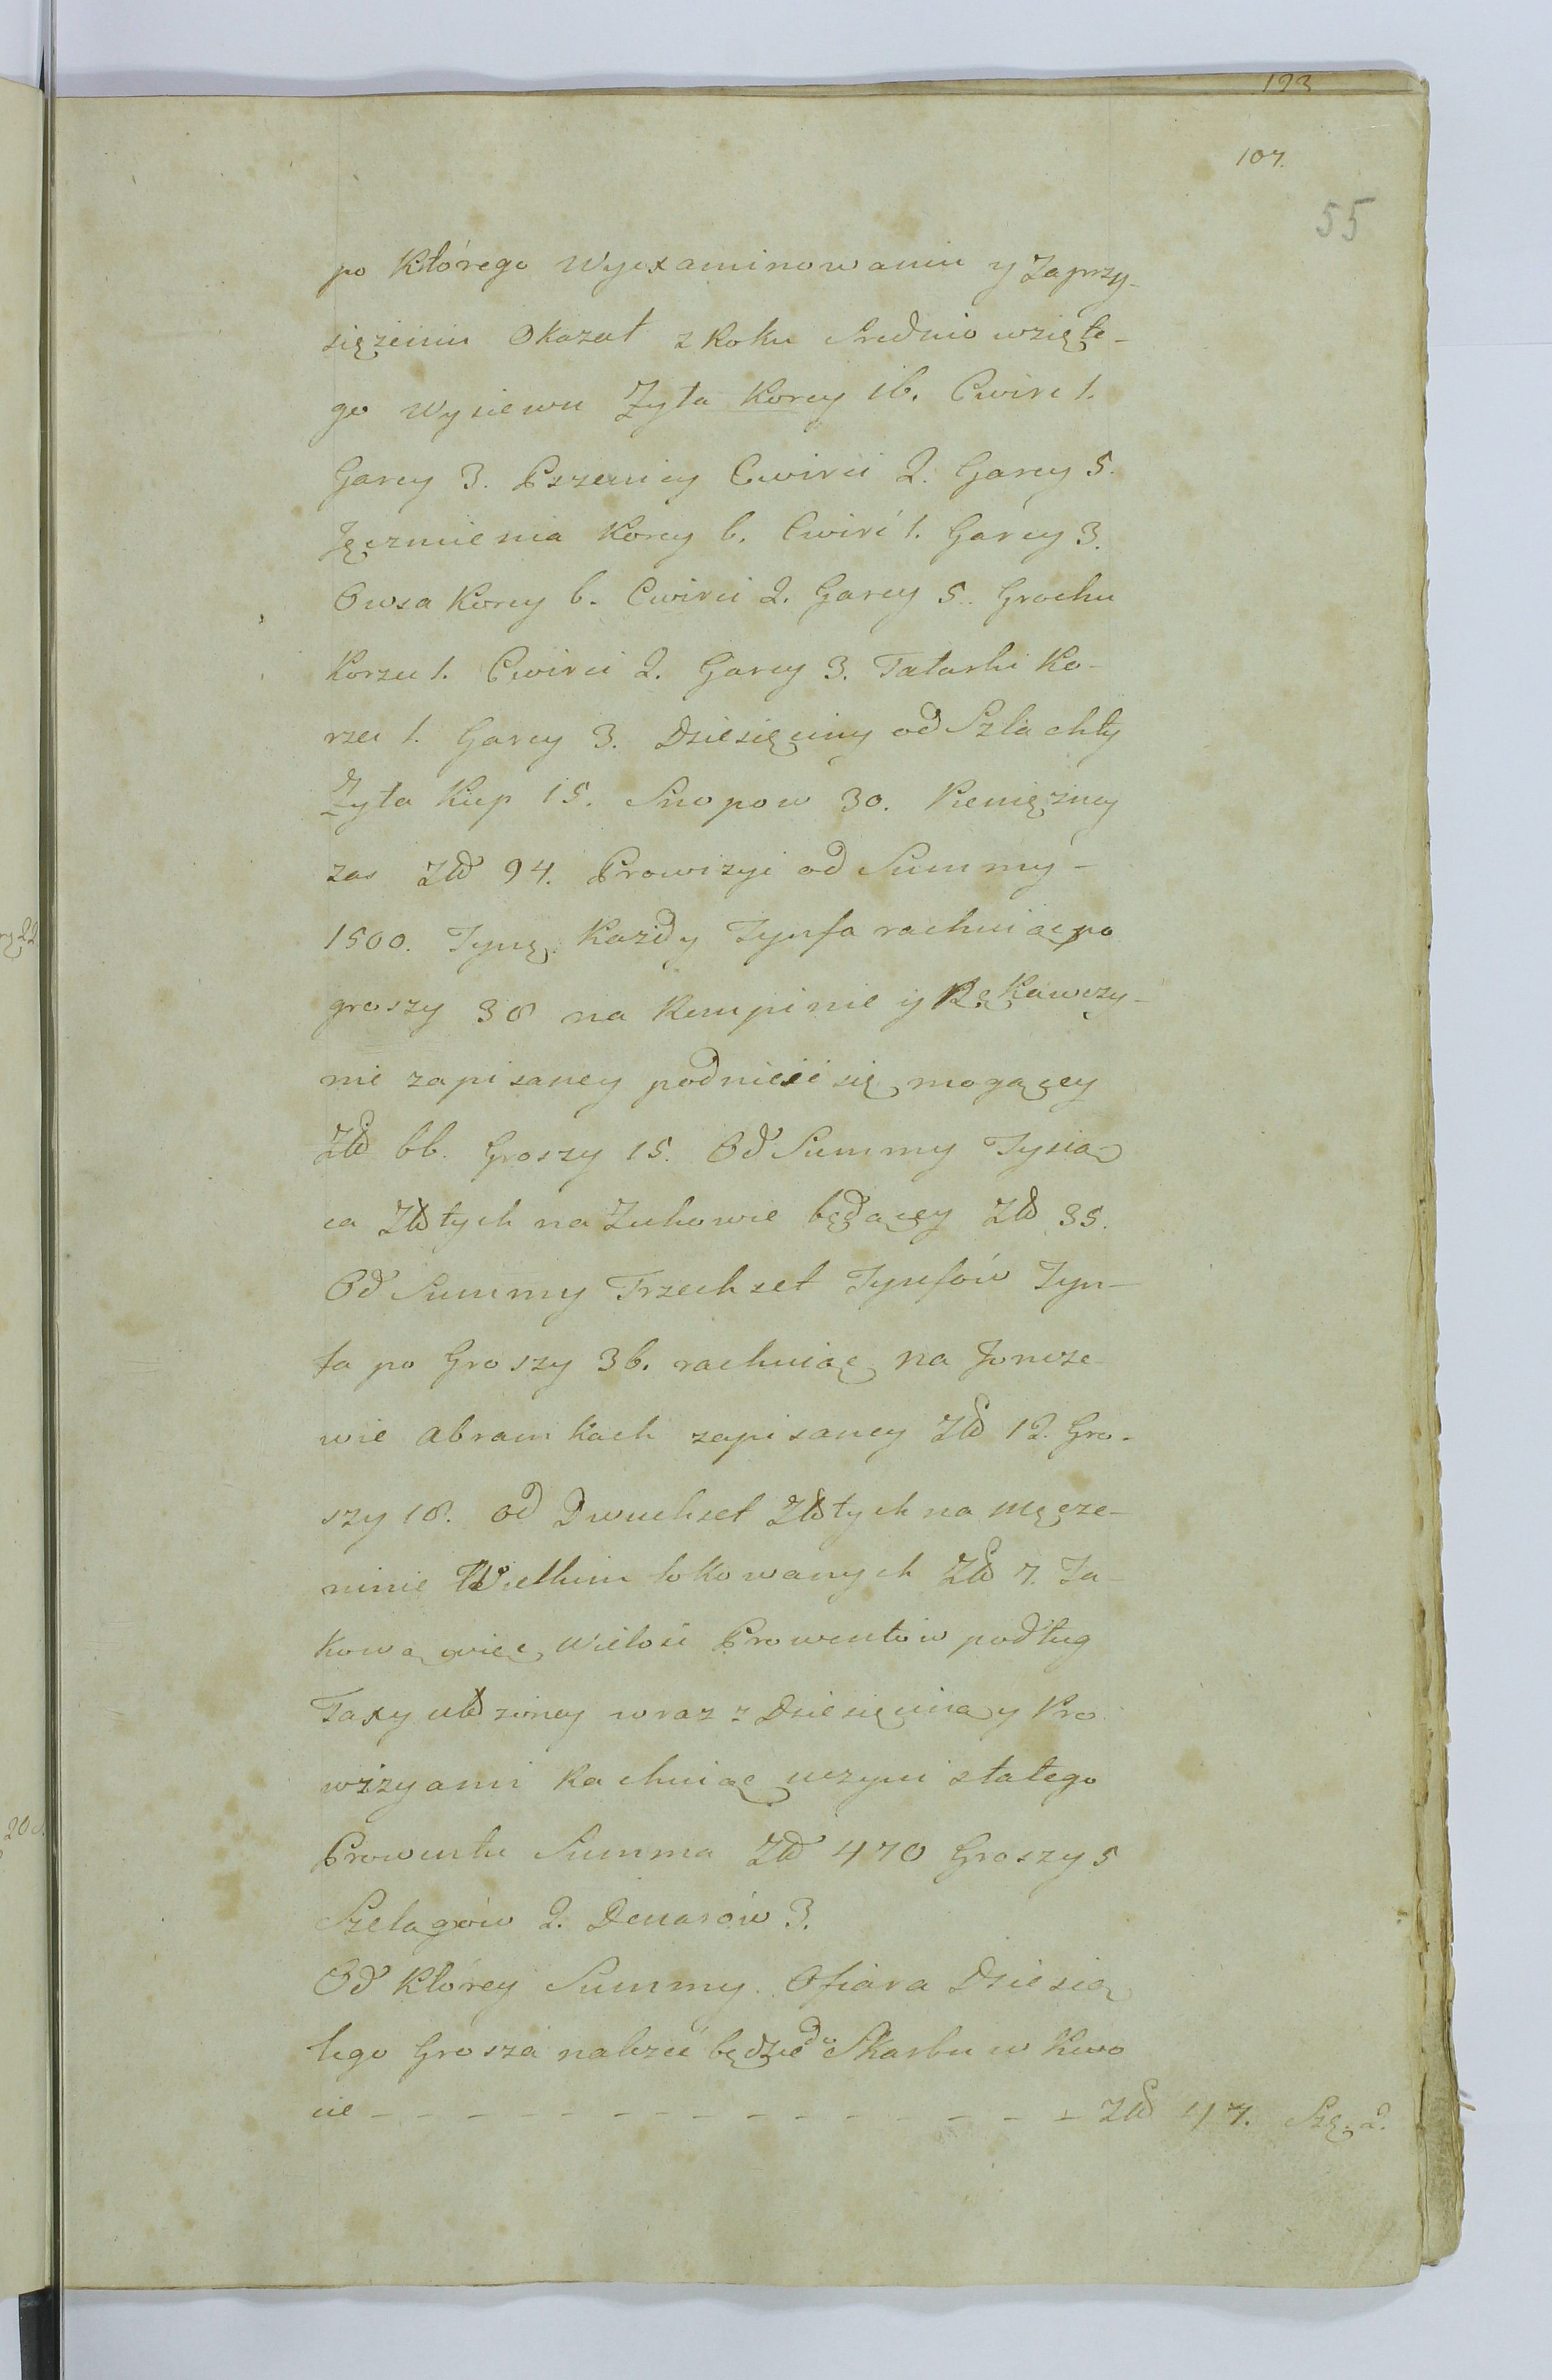 193
107.
55
po Którego Wyexaminowaniu y Zaprzy-
siężeniu Okazał z Roku Srednio wzięte-
go Wysiewu Zyta Korcy 16. Cwirc 1.
Garcy 3. Pszenicy Cwirci 2. Garcy 5.
Jęczmienia Korcy 6. Cwirć 1. Garcy 3.
Owsa Korcy 6. Cwirci 2. Garcy 5. Grochu
Korzec 1. Cwirci 2. Garcy 3. Tatarki Ko-
rzec 1. Garcy 3. Dziesięciny od Szlachty
Zyta Kup 15. Snopow 30. Pieniężney
zas Złł 94. Prowizyi od Summy -
1500. Tynf. Każdy Tynfa rachuiąc po
groszy 38 na Kempinie y Rękawczy-
nie zapisaney podnieść się mogącey
Złł 66. Groszy 15. Od Summy Tysią
ca Złłtych na Zukowie będącey Złł 35.
Od Summy Trzechset Tynfów Tyn-
fa po Groszy 36. rachuiąc na Joncze
wie Abramkach zapisaney Złł 12. Gro-
szy 18. od Dwuchset Złłtych na Męcze-
ninie Wielkim lokowanych Złł 7. Ta-
kową więc Wielość Prowentów podług
Taxy ułłżoney wraz z Dziesięciną y Pro
wizyami Rachuiąc uczyni stałego
Prowentu Summa Złł 470 Groszy 5
Szelągów 2. Denarów 3.
Od Którey Summy. Ofiara Dziesią
tego Grosza nalezeć będzie do Skarbu w Kwo
cie - - - - - - - - - - - - - - - Złł 47. Szę. 2.